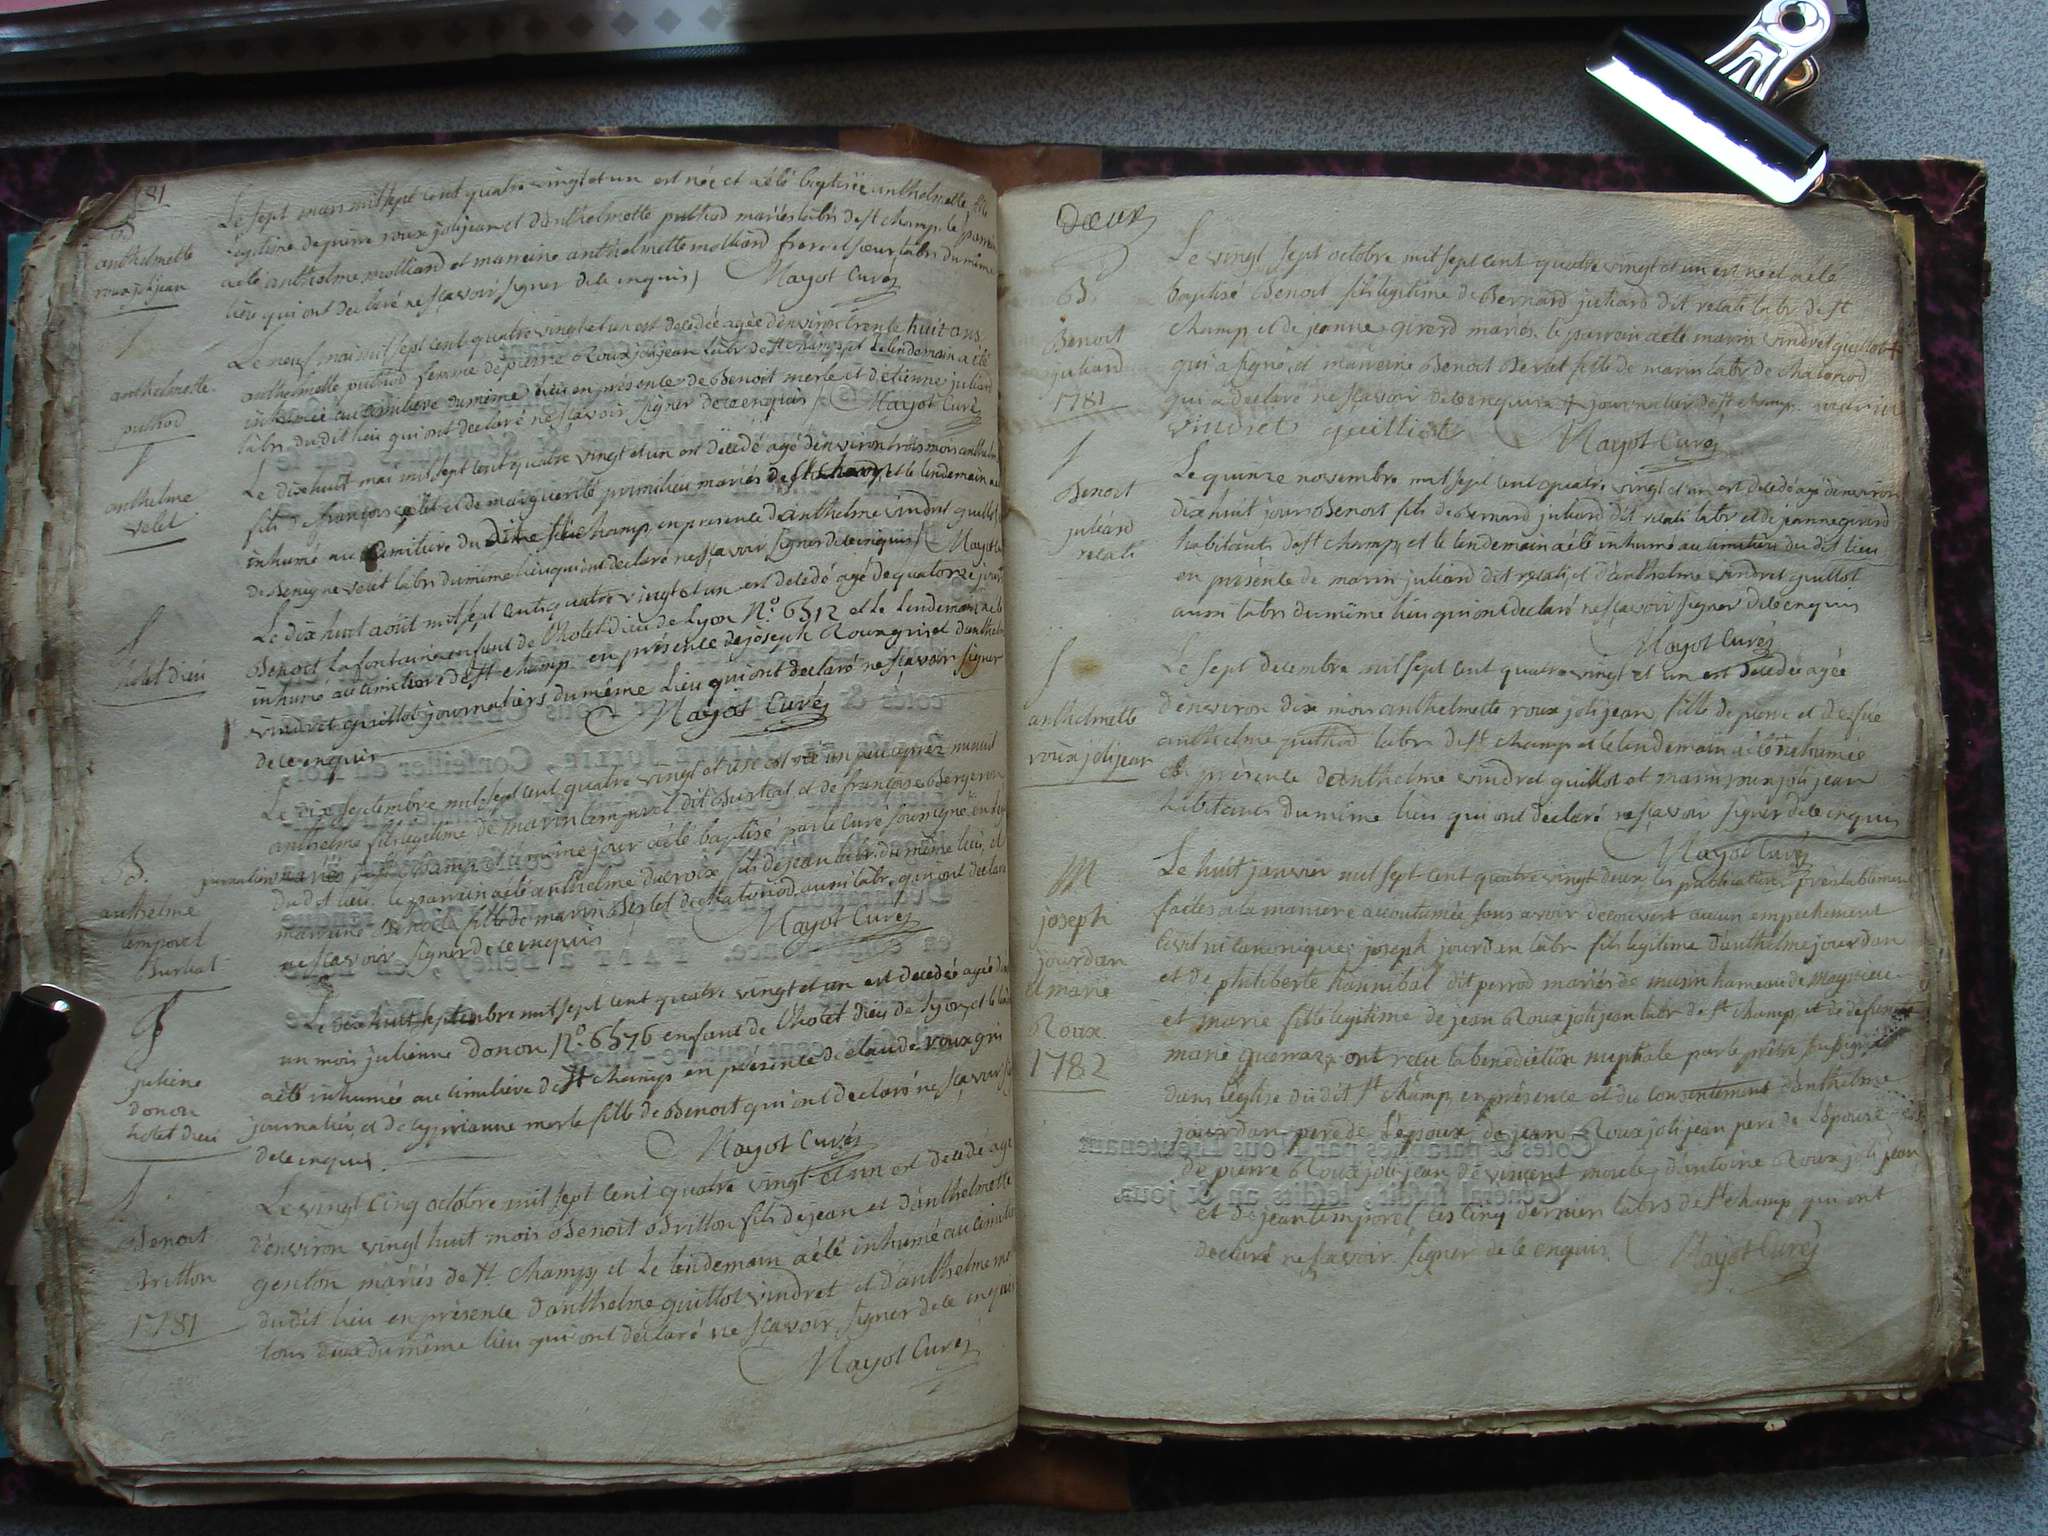 81
B
anthelmette
roux joli jean
Le sept mars mil sept cent quatre vingt et un est née et a été baptisée anthelmette fille
légitime de pierre roux joli jean et d'anthelmette puthod mariés labrs de st champ, le parrain
a été anthelme molliard et marreine anthelmette molliard frere et soeur labrs du même
lieu qui ont declaré ne sçavoir signer de ce enquis Mayot Curé
anthelmette
puthod
Le neuf mai mil sept cent quatre vingt et un est decedée agée d'environ trente huit ans
anthelmette puthod femme de pierre Roux joli jean labr de st champ, et le lendemain a été
inhumée au cimitiere du même lieu en présence de Benoit merle et d'etienne juliard
labrs du dit lieu qui ont declaré ne sçavoir signer de ce enquis Mayot Curé
anthelme
velet
Le dix huit mai mil sept cent quatre vingt et un est decedé agé d'environ trois mois anthelme
fils de françois velet et de marguerite primilieu mariés de st champ, et le lendemain a été
inhumé au Cimitiere du dit st champ en presence d'anthelme vindret quillot et
de Benigne velet labrs du même lieu qui ont declaré ne sçavoir signer de ce enquis Mayot
hotel dieu
Le dix huit août mil sept cent quatre vingt et un est decedé agé de quatorze jours
Benoit Lafontaine enfant de l'hotel-dieu de Lyon N.o 6312 et le lendemain a été
inhumé au cimitiere de st champ en présence de joseph Roux gris et d'anthelme
vindret quillot journaliers du même Lieu qui ont declaré ne sçavoir signer
de ce enquis Mayot Curé
B.
anthelme
temporel
Burlat
Le dix septembre mil sept cent quatre vingt et un est né un peu aprez minuit
anthelme fils légitime de marin temporel dit Burlat et de françoise Bergeron
mariés de st champ et le même jour a été baptisé par le curé soussigné
du dit lieu. le parrain a été anthelme ducroix fils de jean labr du même lieu, et
marreine Benoite fille de marin Berlet de Chatonod aussi labr, qui ont declaré
ne sçavoir signer de ce enquis Mayot Curé
juliene
donon
hotel dieu
Le dix huit septembre mil sept cent quatre vingt et un est decedée agée d'
un mois julienne donon N.o 6576 enfant de l'hotel Dieu de Lyon, et le
a été inhumée au cimitiere de st champ en présence de claude roux gri
journalier, et de cyprianne merle fille de Benoit qui ont declaré ne sçavoir
de ce enquis. Mayot Curé
Benoit
Britton
1781
Le vingt cinq octobre mil sept cent quatre vingt et un est decedé agé
d'environ vingt huit mois Benoit Britton fils de jean et d'anthelmette
genton mariés de st champ, et Le lendemain a été inhumé au cimitiere
du dit lieu en présence d'anthelme quillot vindret et d'anthelme
tous deux du même lieu qui ont declaré ne sçavoir signer de ce enquis
Mayot Curé
Deux
B.
Benoit
juliard
1781
Le vingt sept octobre mil sept cent quatre vingt et un est né et a été
baptisé Benoit fils legitime de Bernard juliard dit relati labr de st
champ et de jeanne girerd mariés. le parrain a été marin vindret quillot +
qui a signé, et marreine Benoit Berlet fille de marin labr de chatonod
qui a declaré ne sçavoir de ce enquise + journalier de st champ. marin
vindret quilliot Mayot Curé
Benoit
juliard
relati
Le quinze novembre mil sept cent quatre vingt et un est decedé agé d'environ
dix huit jour Benoit fils de Bernard juliard dit relati labr et de jeanne girerd
habitants de st champ, et le lendemain a été inhumé au cimitiere du dit lieu
en présence de marin juliard dit relati, et d'anthelme vindret quillot
aussi labrs du même lieu qui ont declaré ne sçavoir signer de ce enquis
Mayot Curé
anthelmette
roux joli jean
Le sept decembre mil sept cent quatre vingt et un est decedée agée
d'environ dix mois anthelmette roux joli jean fille de pierre et de feue
anthelme puthod labr de st champ et le lendemain a été inhumée
en présence d'anthelme vindret quillot et marin roux joli jean
habitants du même lieu qui ont declaré ne sçavoir signer de ce enquis
Mayot Curé
M
joseph
jourdan
et marie
Roux
1782
Le huit janvier mil sept cent quatre vingt deux, les publications préalablement
faites à la maniere accoutumée sans avoir decouvert aucun empechement
civil ni canonique, joseph jourdan labr fils legitime d'anthelme jourdan
et de philiberte hannibal dit perrod mariés de musin hameau de Magnieu
et marie fille legitime de jean Roux joli jean labr de st champ, et de defunte
marie guerraz, ont recu la benediction nuptiale par le prêtre soussigné
dans l'église du dit st champ, en présence et du consentement d'anthelme
jourdan pere de l'epoux, de jean Roux joli jean pere de l'épouse
de pierre Roux joli jean, de vincent merle, d'antoine Roux joli jean
et de jean temporel, les cinq derniers labrs de st champ qui ont
declaré ne sçavoir signer de ce enquis. Mayot Curé